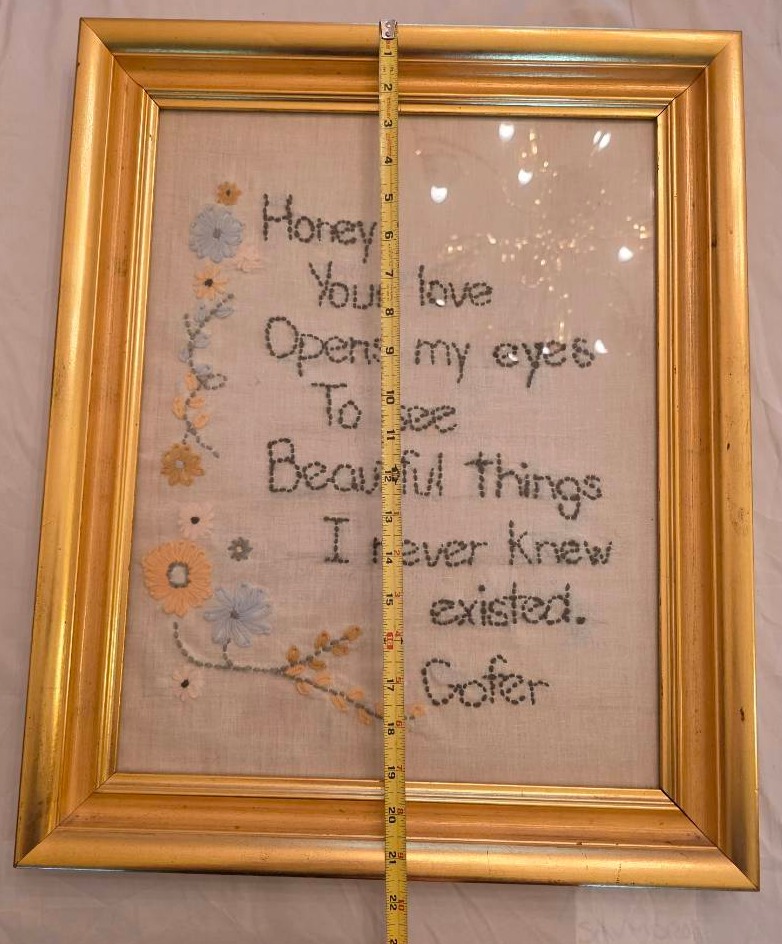 Honey
Your love
Opens my eyes
To see
Beautiful things
I never knew
existed.
Gofer
1
2
3
4
5
6
7
8
9
10
11
12
13
14
15
17
18
19
20
21
22